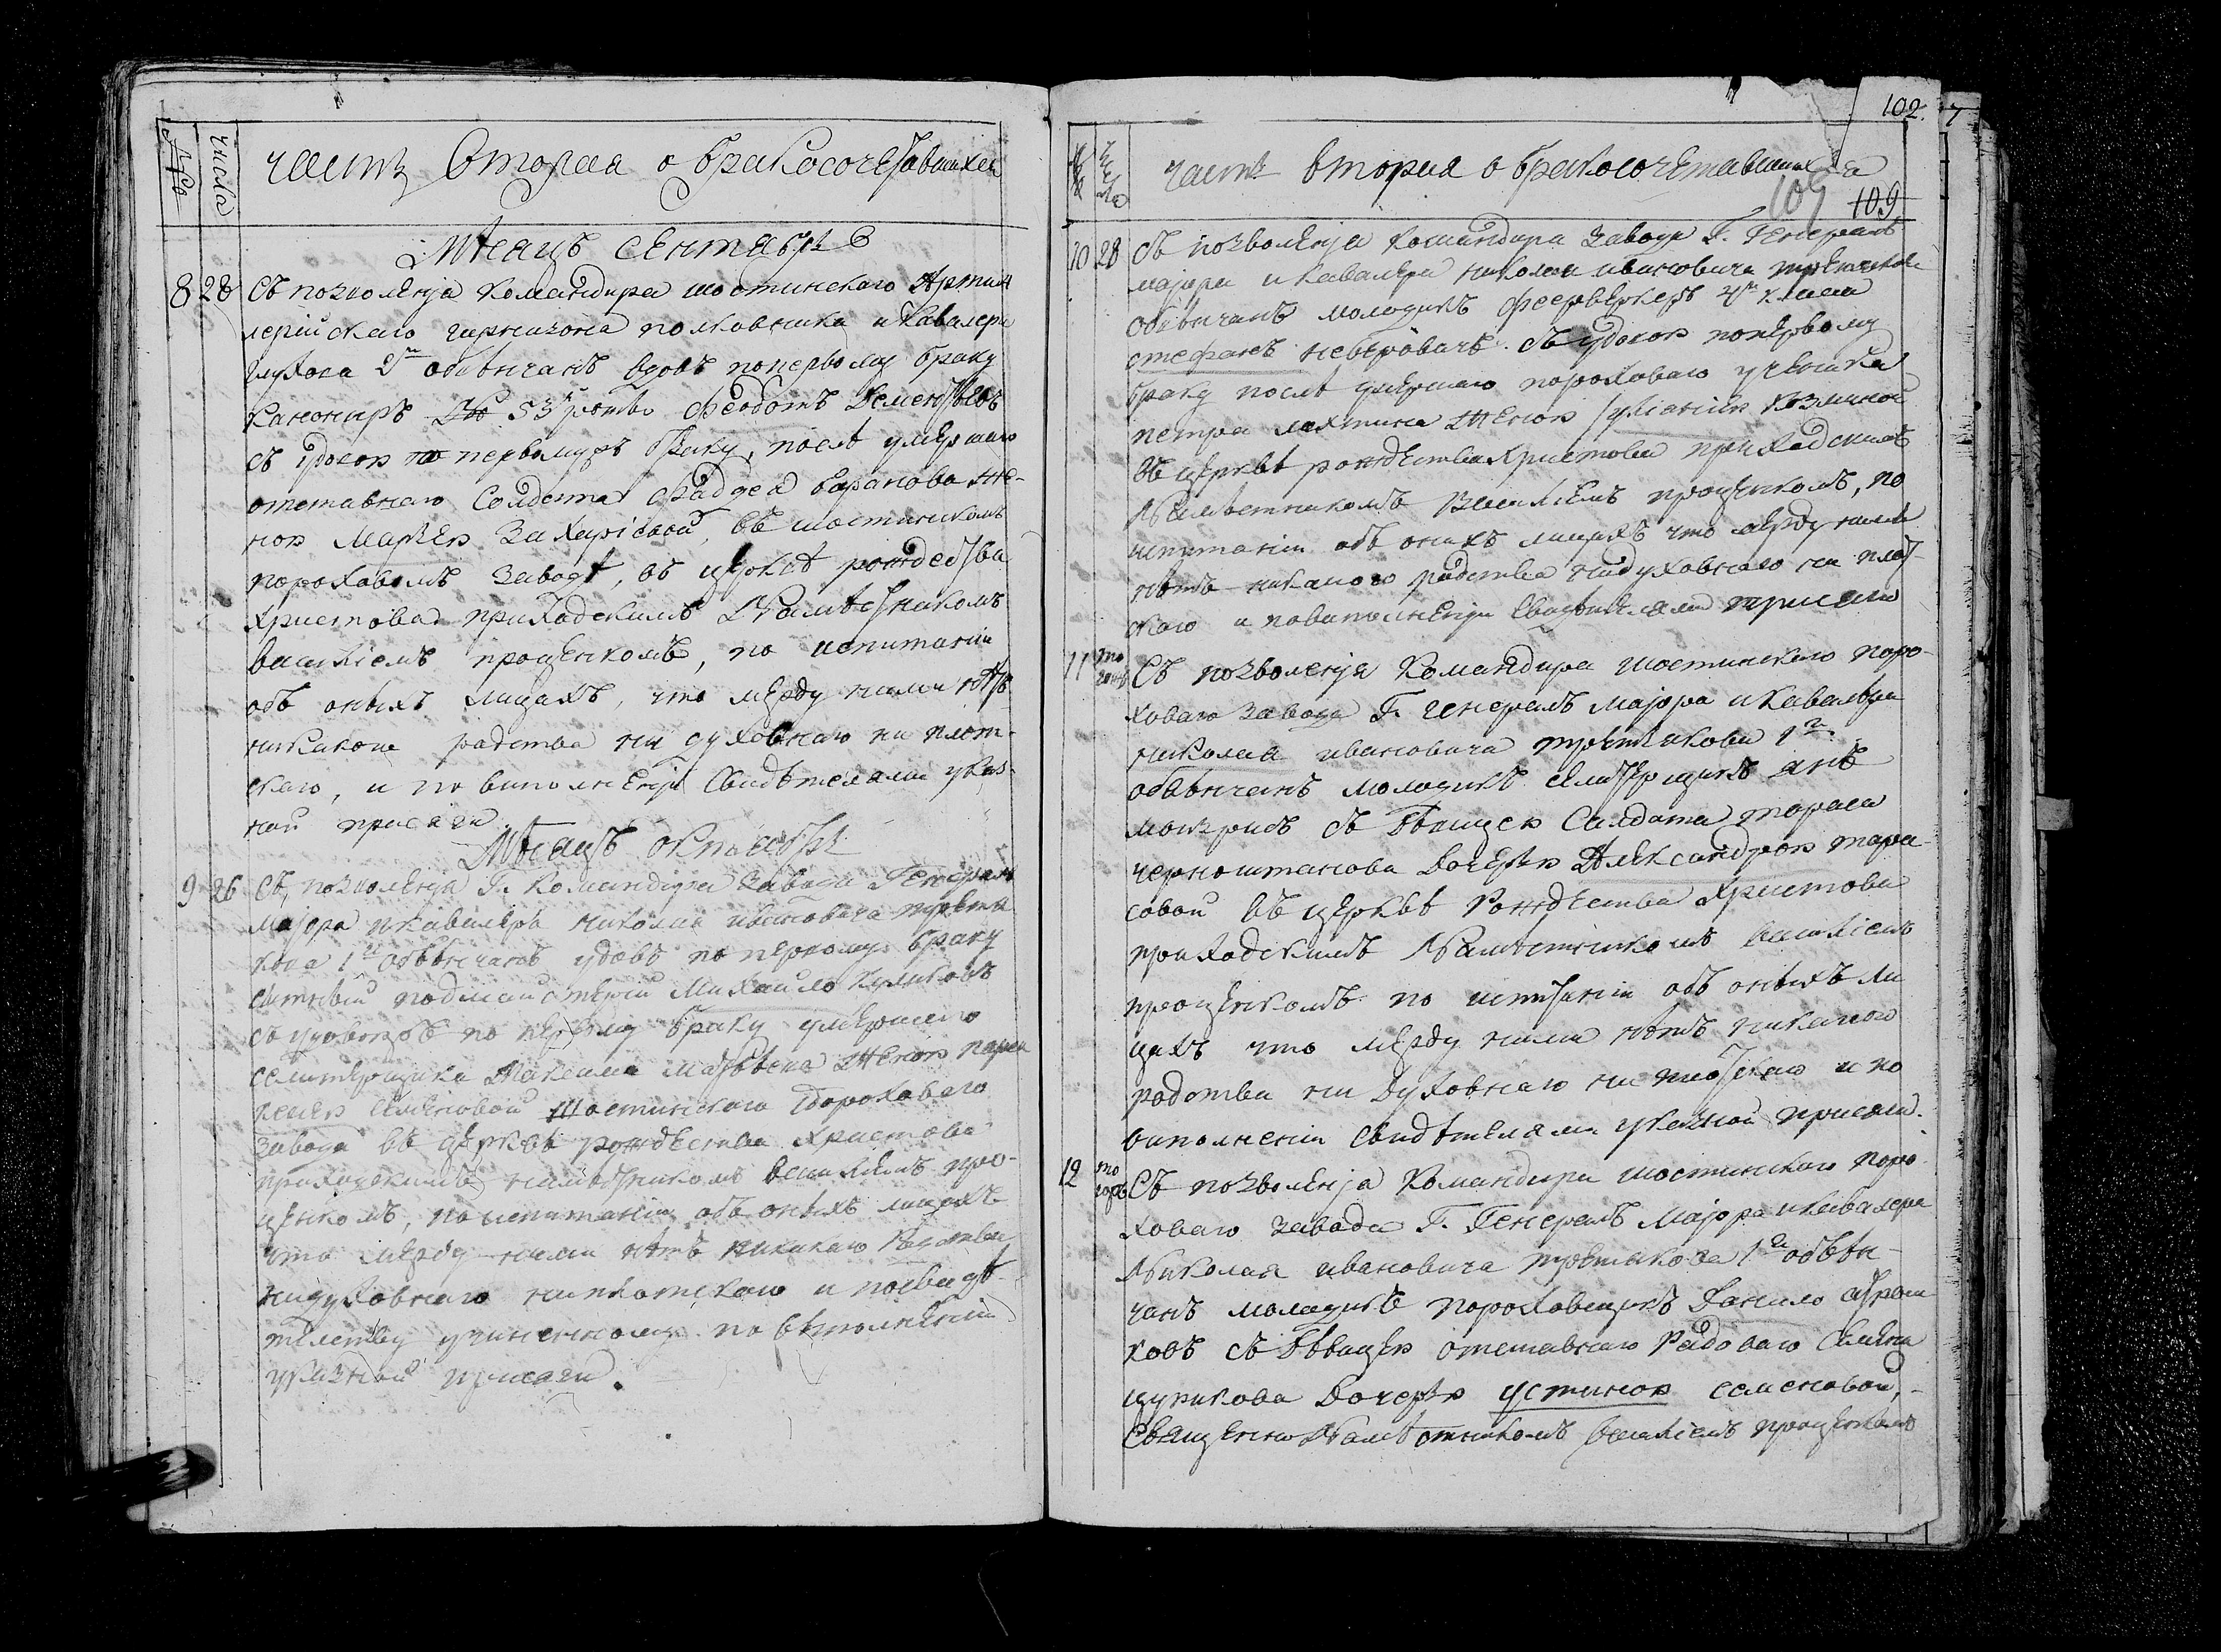 числа
часть Вторая о бракосочетавшихся
Мѣсяцъ Сентябрь
8 28 Съ позволенія командира шостинскаго Артил
лерійскаго гарнизона полковника и кавалера
2го обвѣнчанъ вдовъ поперьвому браку
канониръ 53 роты Феодотъ Дементьевъ
съ вдовою по первому браку, послѣ умершаго
отставнаго Солдата Фаддея баранова же-
ною Марѳею Захаріевой, въ шостинскомъ
пороховомъ заводѣ, въ церквѣ рождества
христова приходскимъ Намѣстникомъ
василіемъ проценкомъ, по испитаніи
объ оныхъ лицахъ, что между ними нѣтъ
никакого радства ни духовнаго ни плот-
скаго, и по виполненіи Свидѣтелями указ-
ной присяги.
Мѣсяцъ октябрь
9 26 Съ позволенія Г. Командира завода Генералъ
Маіора и кавалера николая ивановича третя
кова 1го обвѣнчанъ удовъ по первому браку
подмайстерій Михайло куликовъ
съ удовою по первому браку умершаго
селитерщика Максима Матвѣева женою парас
кевіею Семеновой Шостинскаго пороховаго
завода въ церквѣ рождества христова
приходскимъ намѣстникомъ василіемъ про-
ценкомъ, по испитаніи объ оныхъ лицахъ
что между ними нѣтъ никакого Родства
нидуховнаго ниплотскаго и посвидѣ-
телству учиненному по выполненіи
указной присяги.
102. 7
часть вторая о бракосочетавшихся
109 109
10 28 Съ позволенія командира завода Г. Генералъ
маіора и кавалера николая ивановича третякова
обвѣнчанъ молодикъ феерверкеръ 4го класа
стефанъ неверовичъ. съ удовою поперьвому
браку послѣ умершаго пороховаго ученика
петра женою Уліаніею козминой
въ церквѣ рождества христова приходскимъ
Намѣстникомъ Василіемъ проценкомъ, по
испитаніи объ оныхъ лицахъ что между ними
нѣтъ никакого радства нидуховнаго ни плот-
скаго и повиполненіи свидѣтелями присяги
11 тогожъ Съ позволенія Командира шостинскаго поро-
ховаго завода Г. Генералъ Маіора и кавалера
николая ивановича третякова 1го.
обвѣнчанъ молодикъ селитерщикъ
съ дѣвицею Салдата тараса
черноштанова дочерю Александрою тара
совой въ церквѣ Рождества Христова
приходскимъ Намѣстникомъ василіемъ
проценкомъ по испитаніи объ оныхъ ли
цахъ что между ними нѣтъ никакого
родства ни духовнаго ни плотскаго и по
виполненіи свидѣтелями указной присяги.
12 тогожъ Съ позволенія Командира шостинскаго поро
ховаго завода Г. Генералъ Маіора и кавалера
Николая ивановича третякова 1го обвѣн-
чанъ молодикъ пороховщикъ Данило
ковъ съ дѣвицею отставнаго Радоваго Семена
цурикова дочерю устиною семеновой,
Священно Намѣстникомъ василіемъ проценкомъ